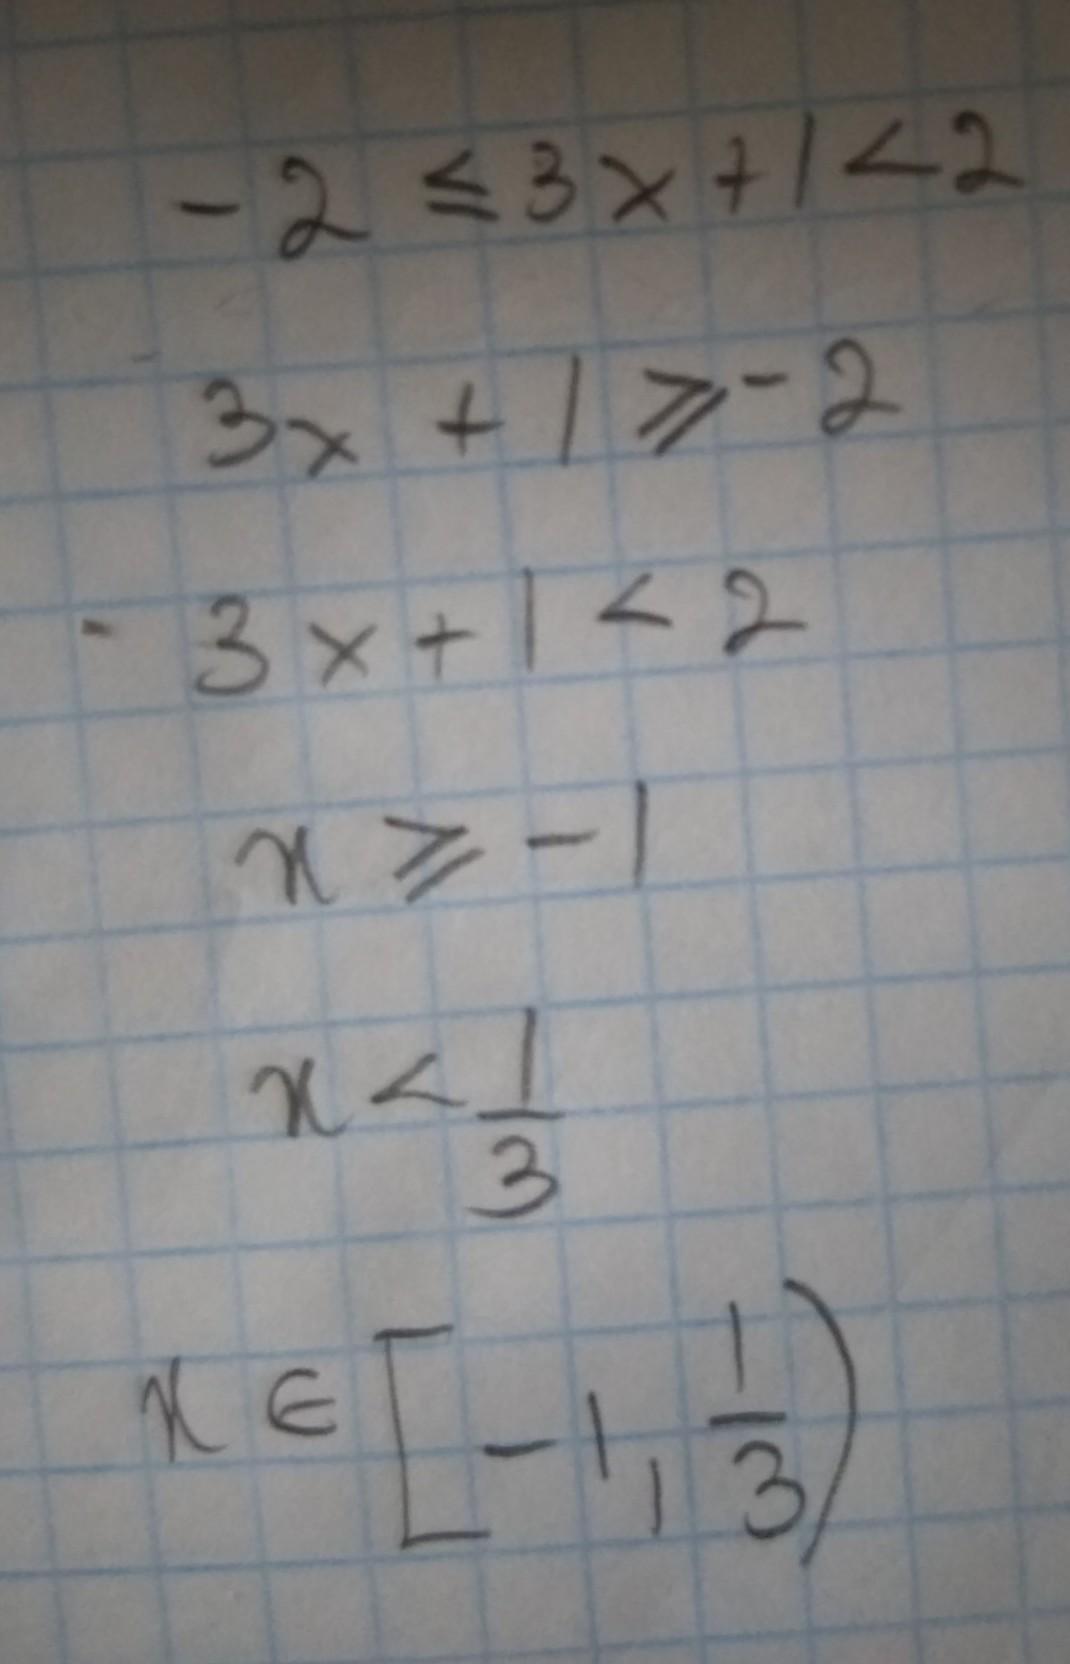 -2 ≤ 3x + 1 < 2
3x + 1 ⩾ -2
- 3x + 1 < 2
x ⩾ -1
x < 1/3
x ∈ [-1, 1/3)